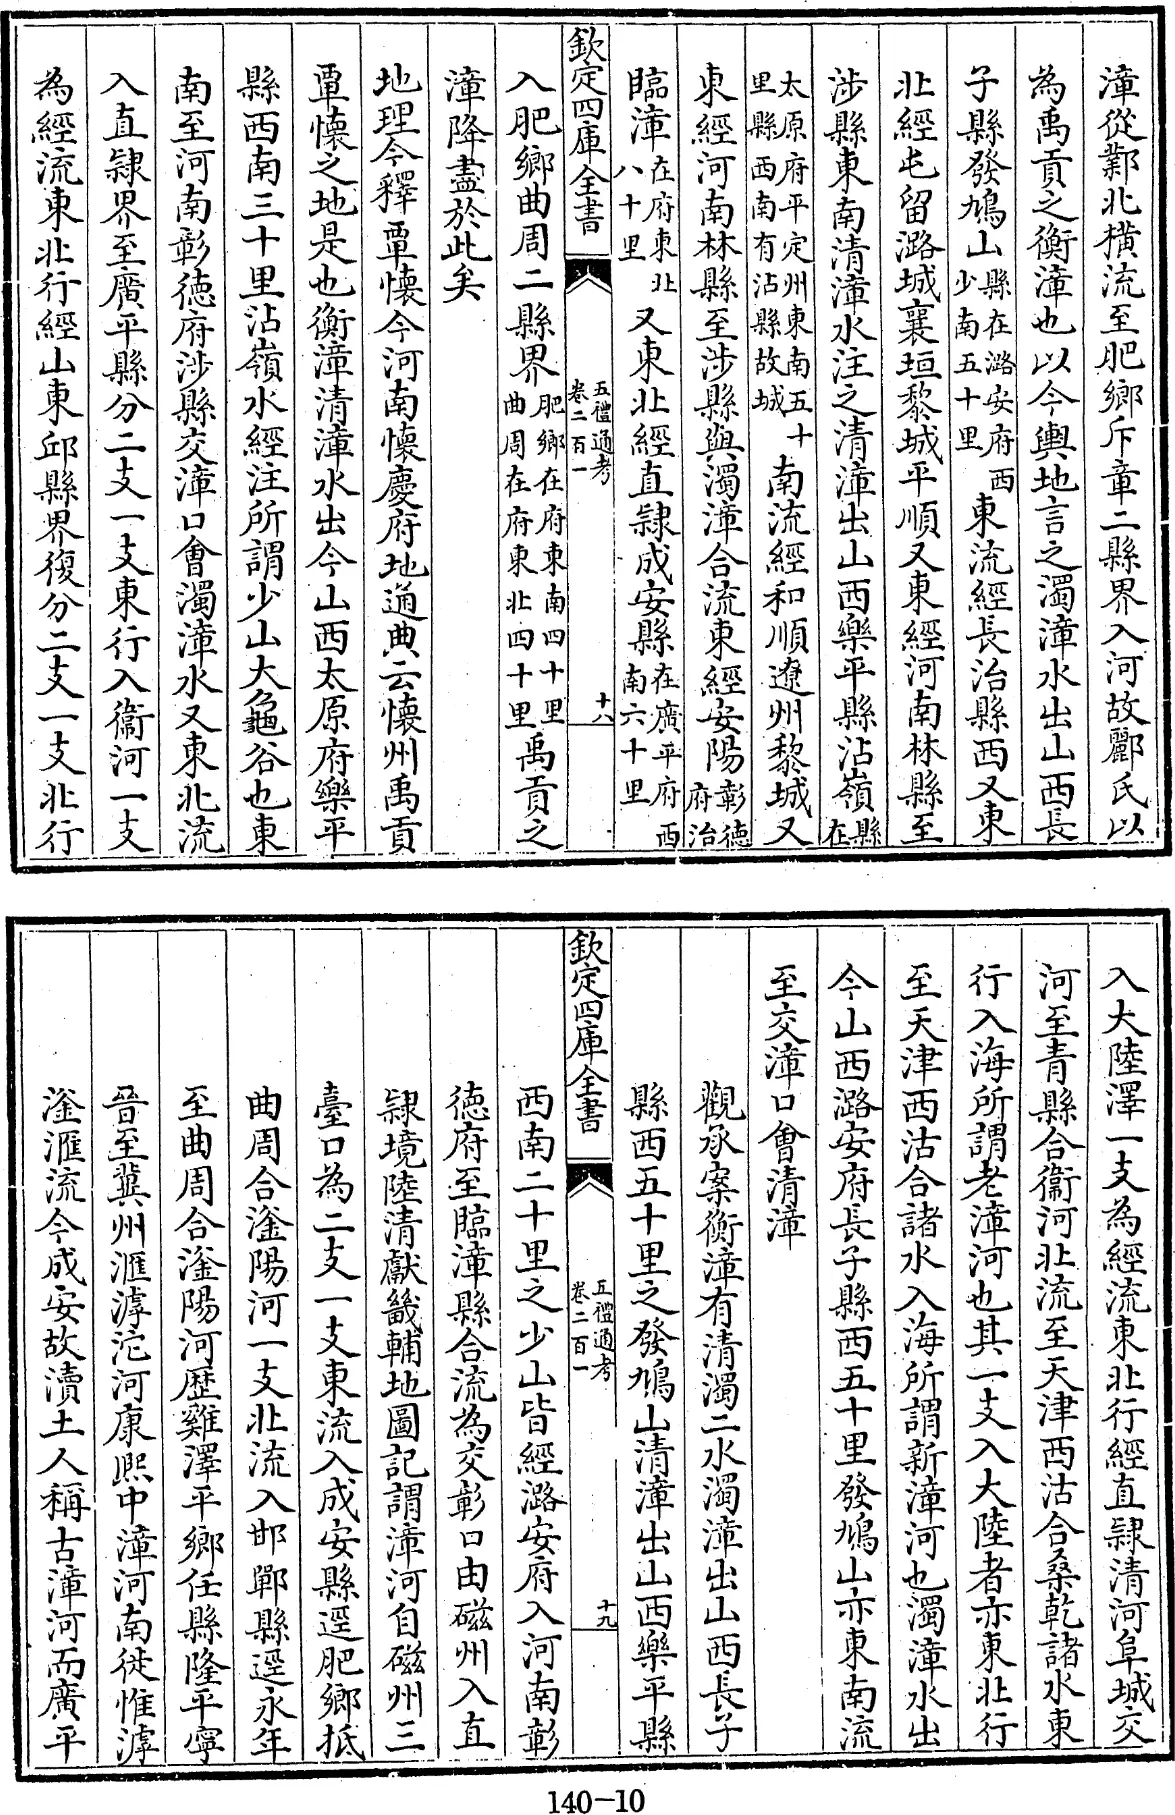 漳從鄴北橫流至肥鄉斥章二縣界入河故酈氏以
為禹貢之衡漳也以今輿地言之濁漳水出山西長
子縣發鳩山縣在潞安府西少南五十里東流經長治縣西又東
北經屯留潞城襄垣黎城平順又東經河南林縣至
涉縣東南清漳水注之清漳出山西樂平縣沾嶺縣在
太原府平定州東南五十里縣西南有沾縣故城南流經和順遼州黎城又
東經河南林縣至涉縣與濁漳合流東經安陽彰德府治
臨漳在府東北八十里又東北經直隸成安縣在廣平府西南六十里
欽定四庫全書
五禮通考
卷二百一
十八
入肥鄉曲周二縣界肥鄉在府東南四十里曲周在府東北四十里禹貢之
漳降盡於此矣
地理今釋覃懷今河南懷慶府地通典云懷州禹貢
覃懷之地是也衡漳清漳水出今山西太原府樂平
縣西南三十里沾嶺水經注所謂少山大黽谷也東
南至河南彰德府涉縣交漳口會濁漳水又東北流
入直隸界至廣平縣分二支一支東行入衞河一支
為經流東北行經山東邱縣界復分二支一支北行
入大陸澤一支為經流東北行經直隸清河阜城交
河至青縣合衞河北流至天津西沽合桑乾諸水東
行入海所謂老漳河也其一支入大陸者亦東北行
至天津西沽合諸水入海所謂新漳河也濁漳水出
今山西潞安府長子縣西五十里發鳩山亦東南流
至交漳口會清漳
觀承案衡漳有清濁二水濁漳出山西長子
縣西五十里之發鳩山清漳出山西樂平縣
欽定四庫全書
五禮通考
卷二百一
十九
西南二十里之少山皆經潞安府入河南彰
德府至臨漳縣合流為交彰口由磁州入直
隸境陸清獻畿輔地圖記謂漳河自磁州三
臺口為二支一支東流入成安縣逕肥鄉抵
曲周合滏陽河一支北流入邯鄲縣逕永年
至曲周合滏陽河歷雞澤平鄉任縣隆平寧
晉至冀州滙滹沱河康熙中漳河南徙惟滹
滏滙流今成安故瀆土人稱古漳河而廣平
140-10